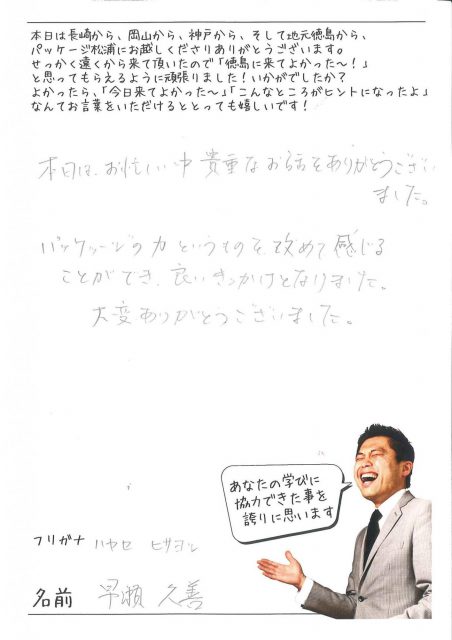 本日は長崎から、岡山から、神戸から、そして地元徳島から、
パッケージ松浦にお越しくださりありがとうございます。
せっかく遠くから来て頂いたので「徳島に来てよかった～！」
と思ってもらえるように頑張りました！いかがでしたか？
よかったら、「今日来てよかった～」「こんなところがヒントになったよ」
なんてお言葉をいただけるととっても嬉しいです！
本日は、お忙しい中貴重なお話をありがとうござい
ました。
パッケージの力というものを改めて感じる
ことができ、良いきっかけとなりました。
大変ありがとうございました。
あなたの学びに
協力できた事を
誇りに思います
フリガナ ハヤセ ヒサヨシ
名前 早瀬 久善